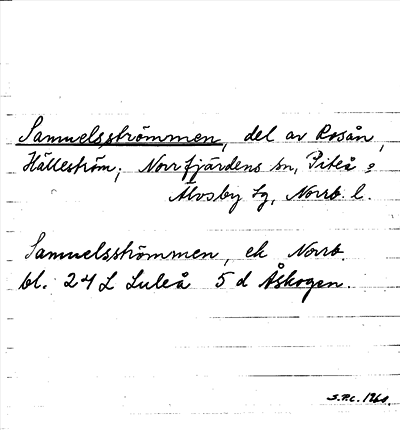 Samuelsströmmen, del av Rosån,
Hälleström; Norrfjärdens sn, Piteå o
Älvsby tg, Norrb. l.
Samuelsströmmen, ek Norrb.
bl. 24 L Luleå 5 d Åskogen.
S.P.C. 1960.